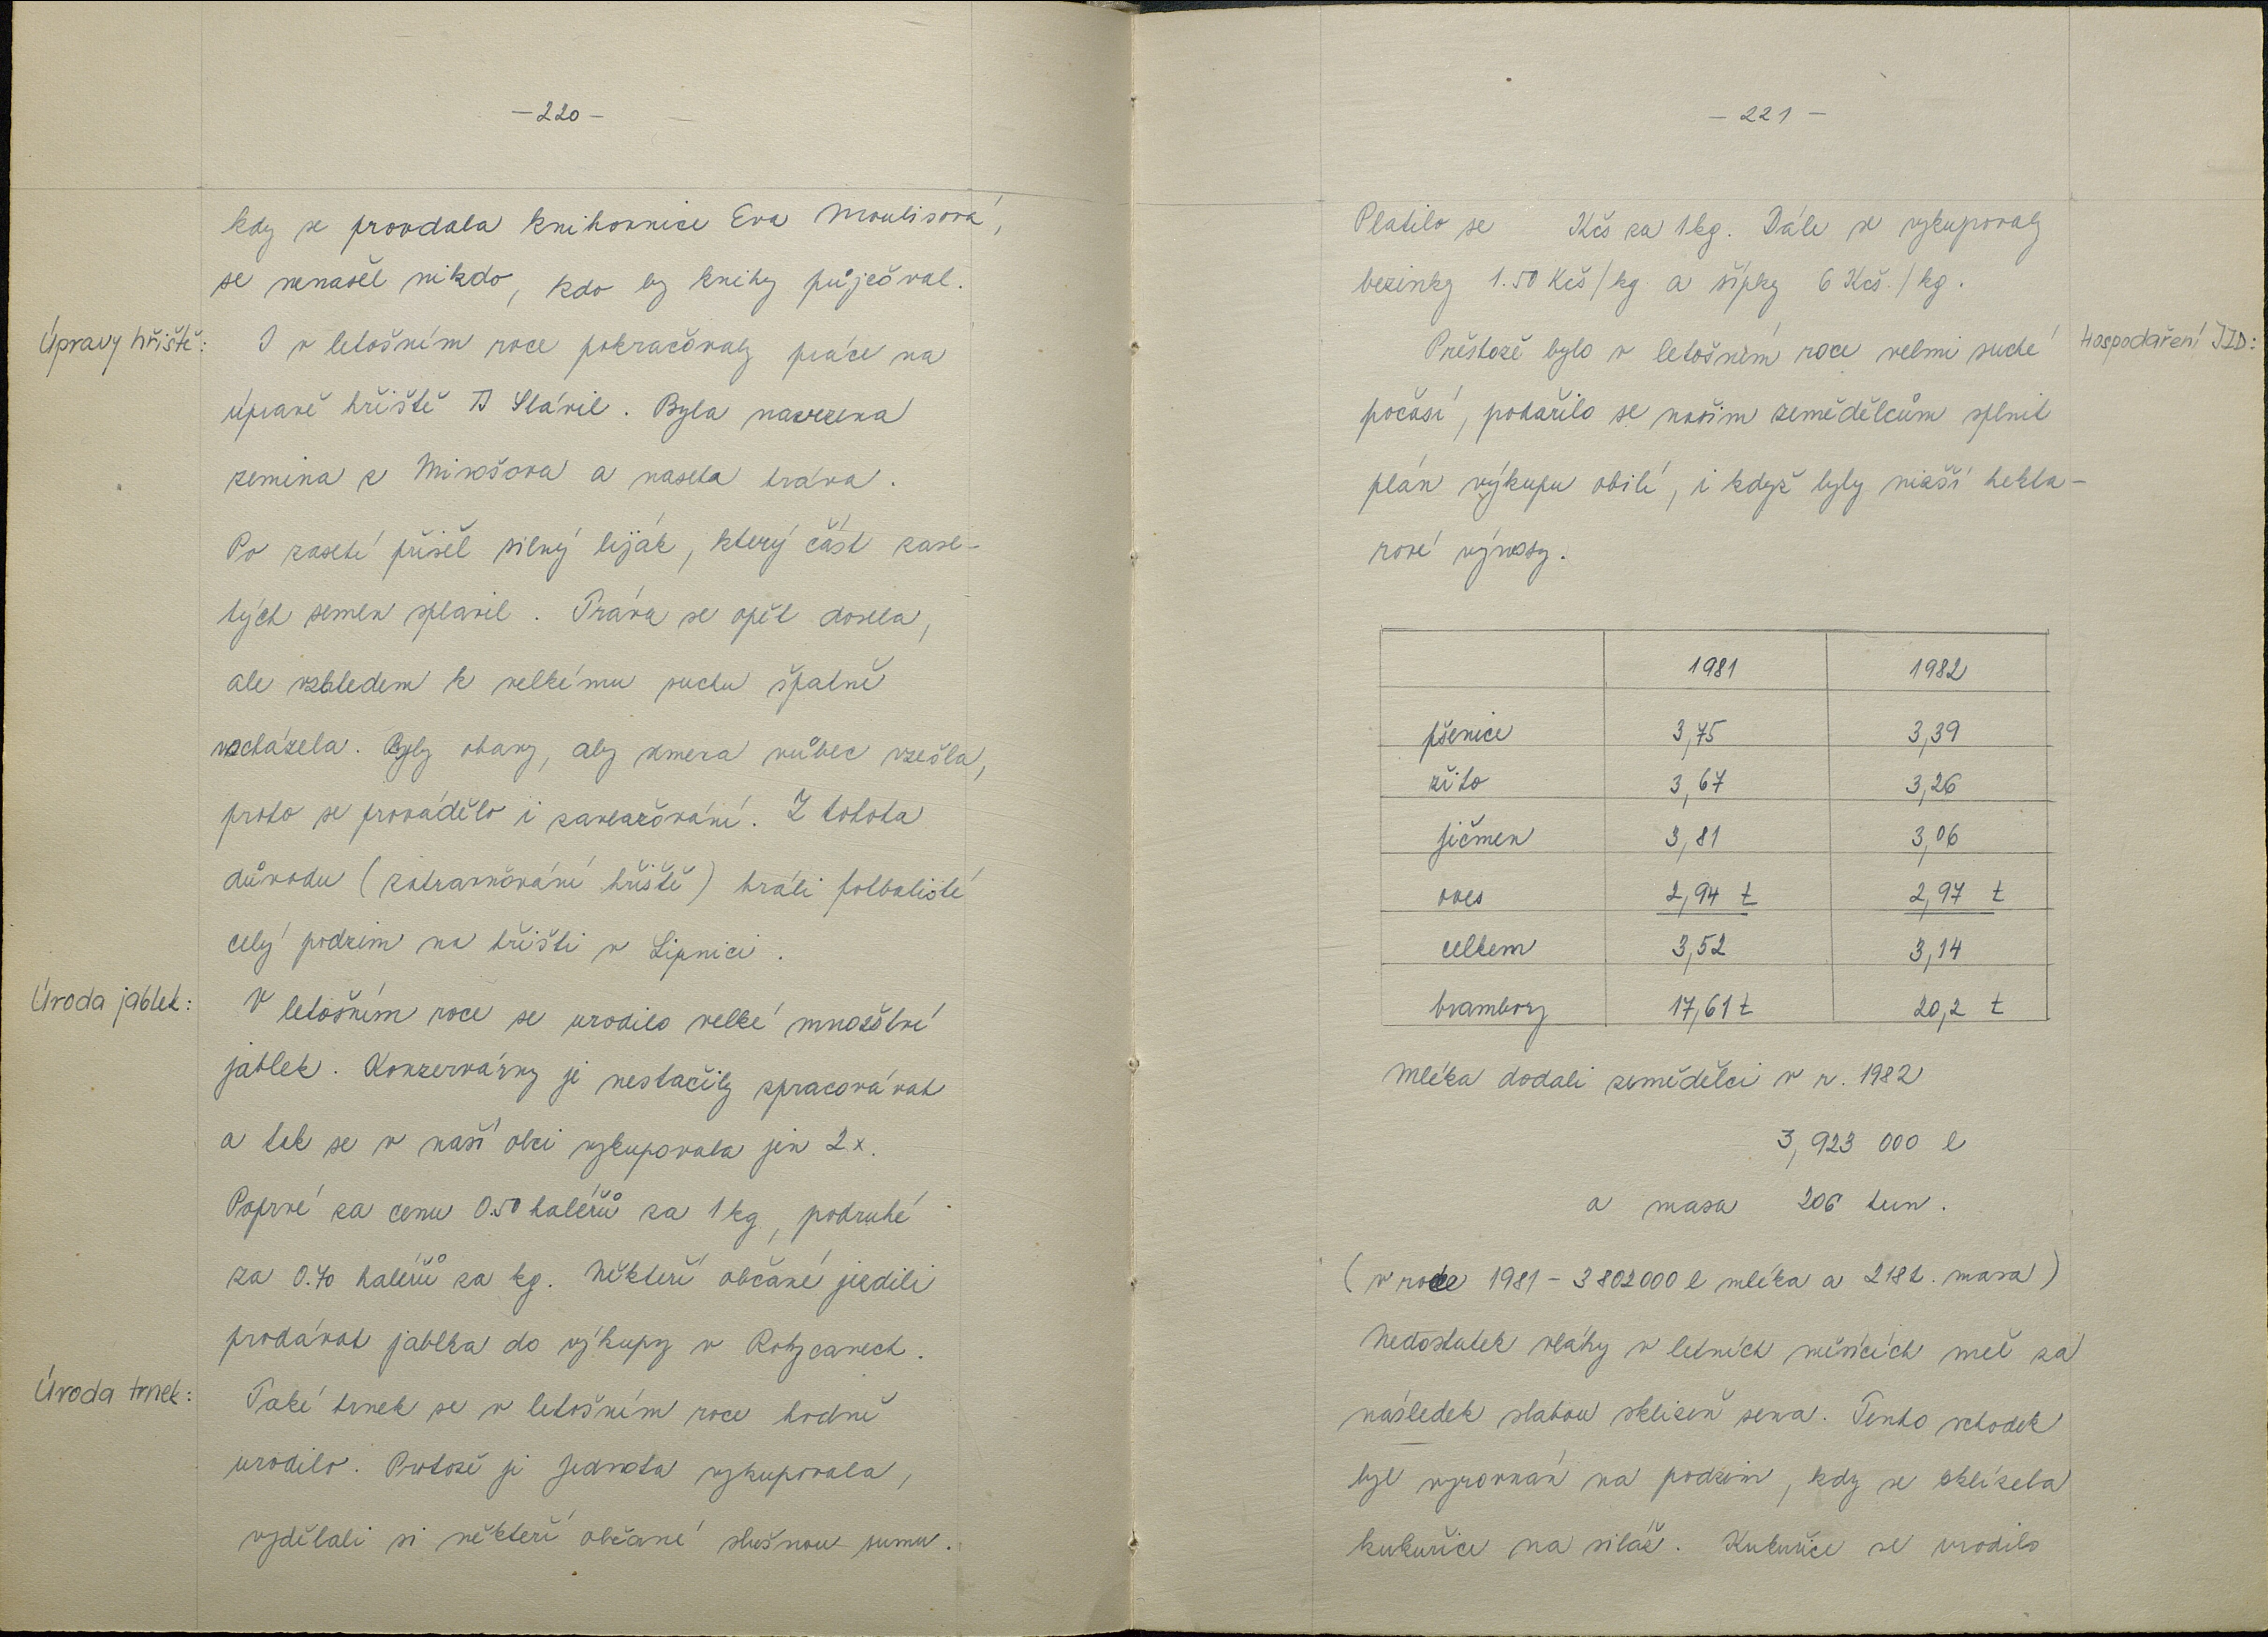 - 220 -
kdy se provdala knihovnice Eva Moulisová,
se nenašel nikdo, kdo by knihy půjčoval.
Úpravy hřiště:
I v letošním roce pokračovaly práce na
úpravě hřiště TJ Slávil. Byla navezena
zemina z Mirošova a naseta tráva.
Po zasetí přišel silný liják, který část zase-
tých semen splavil. Tráva se opět dosela,
ale vzhledem k velkému suchu špatně
vzcházela. Byly obavy, aby semena vůbec vzešla,
proto se provádělo i zavlažování. Z tohota
důvodu (zatravňování hřiště) hráli fotbalisté
celý podzim na hřišti v Lipnici.
Úroda jablek:
V letošním roce se urodilo velké množství
jablek. Konzervárny je nestačily zpracovávat
a tak se v naší obci vykupovala jen 2x.
Poprvé za cenu 0.50 haléřů za 1 kg, podruhé
za 0.40 haléřů za kg. Někteří občané jezdili
prodávat jablka do výkupy v Rokycanech.
Úroda trnek:
Také trnek se v letošním roce hodně
urodilo. Protože je Jednota vykupovala,
vydělali si někteří občané slušnou sumu.
- 221 -
Platilo se Kčs za 1kg. Dále se vykupovaly
bezinky 1.50 Kčs/kg a šípky 6 Kčs./kg.
Hospodaření JZD:
Přestože bylo v letošním roce velmi suché
počásí, podařilo se našim zemědělcům splnit
plán výkupu obilí, i když byly nižší hekta-
rové výnosy.
1981 1982
pšenice 3,75 3,39
žito 3,67 3,26
ječmen 3,81 3,06
oves 2,94 t 2,97 t
celkem 3,52 3,14
brambory 17,61 t 20,2 t
Mléka dodali zemědělci v r. 1982
3,923 000 l
a masa 206 tun.
(v roce 1981 - 3 802 000 l mléka a 218 t. masa)
Nedostatek vláhy v letních měsících měl za
následek slabou sklizeň sena. Tento schodek
byl vyrovnán na podzim, kdy se sklízela
kukuřice na siláž. Kukuřice se urodilo